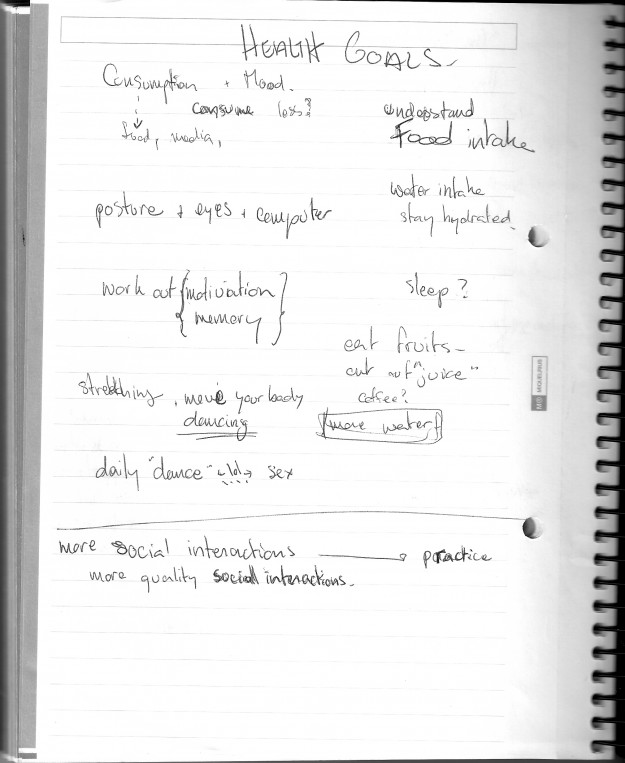 HEALTH GOALS
Consumption + Mood.
consume less?
food, media,
understand
Food intake
water intake
stay hydrated.
posture + eyes + computer
work out {motivation
{memory}
sleep?
eat fruits
cut out "juice"
coffee?
more water!
stretching, move your body
dancing
daily "dance" <lol> sex
more social interactions → practice
more quality social interactions.
MIQUELRIUS